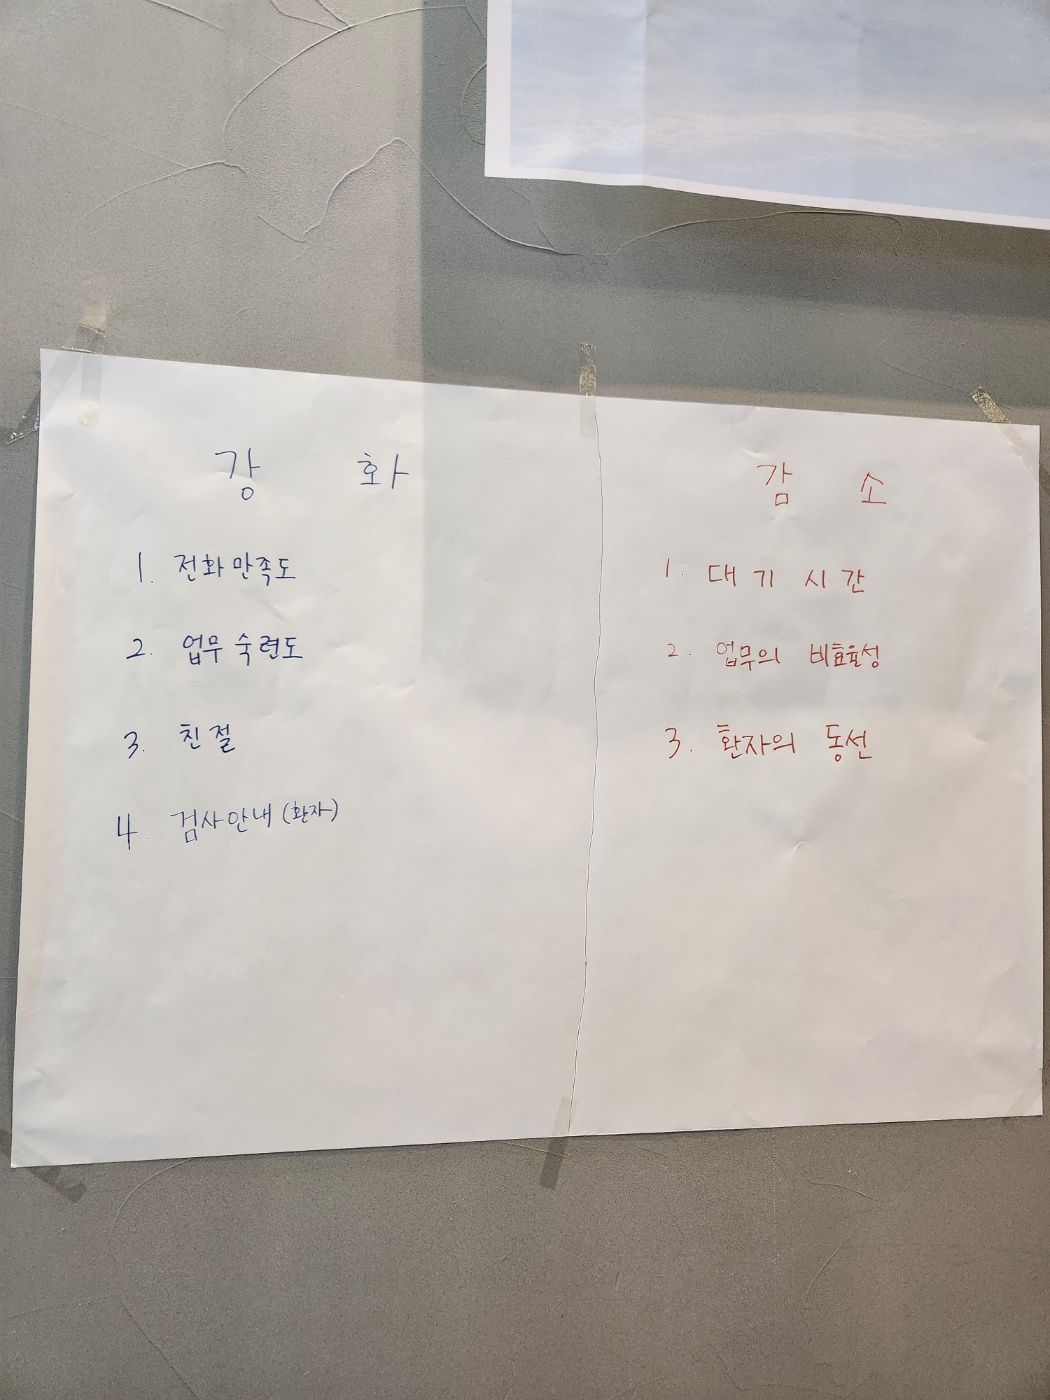 강 화
1. 전화만족도
2. 업무 숙련도
3. 친절
4. 검사안내 (환자)
감 소
1. 대기 시간
2. 업무의 비효율성
3. 환자의 동선